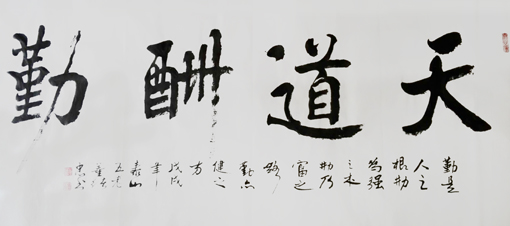 天道酬勤
勤是
人之
根勤
為强
之
勤乃
富之
路
勤亦
健之
方
戊戌